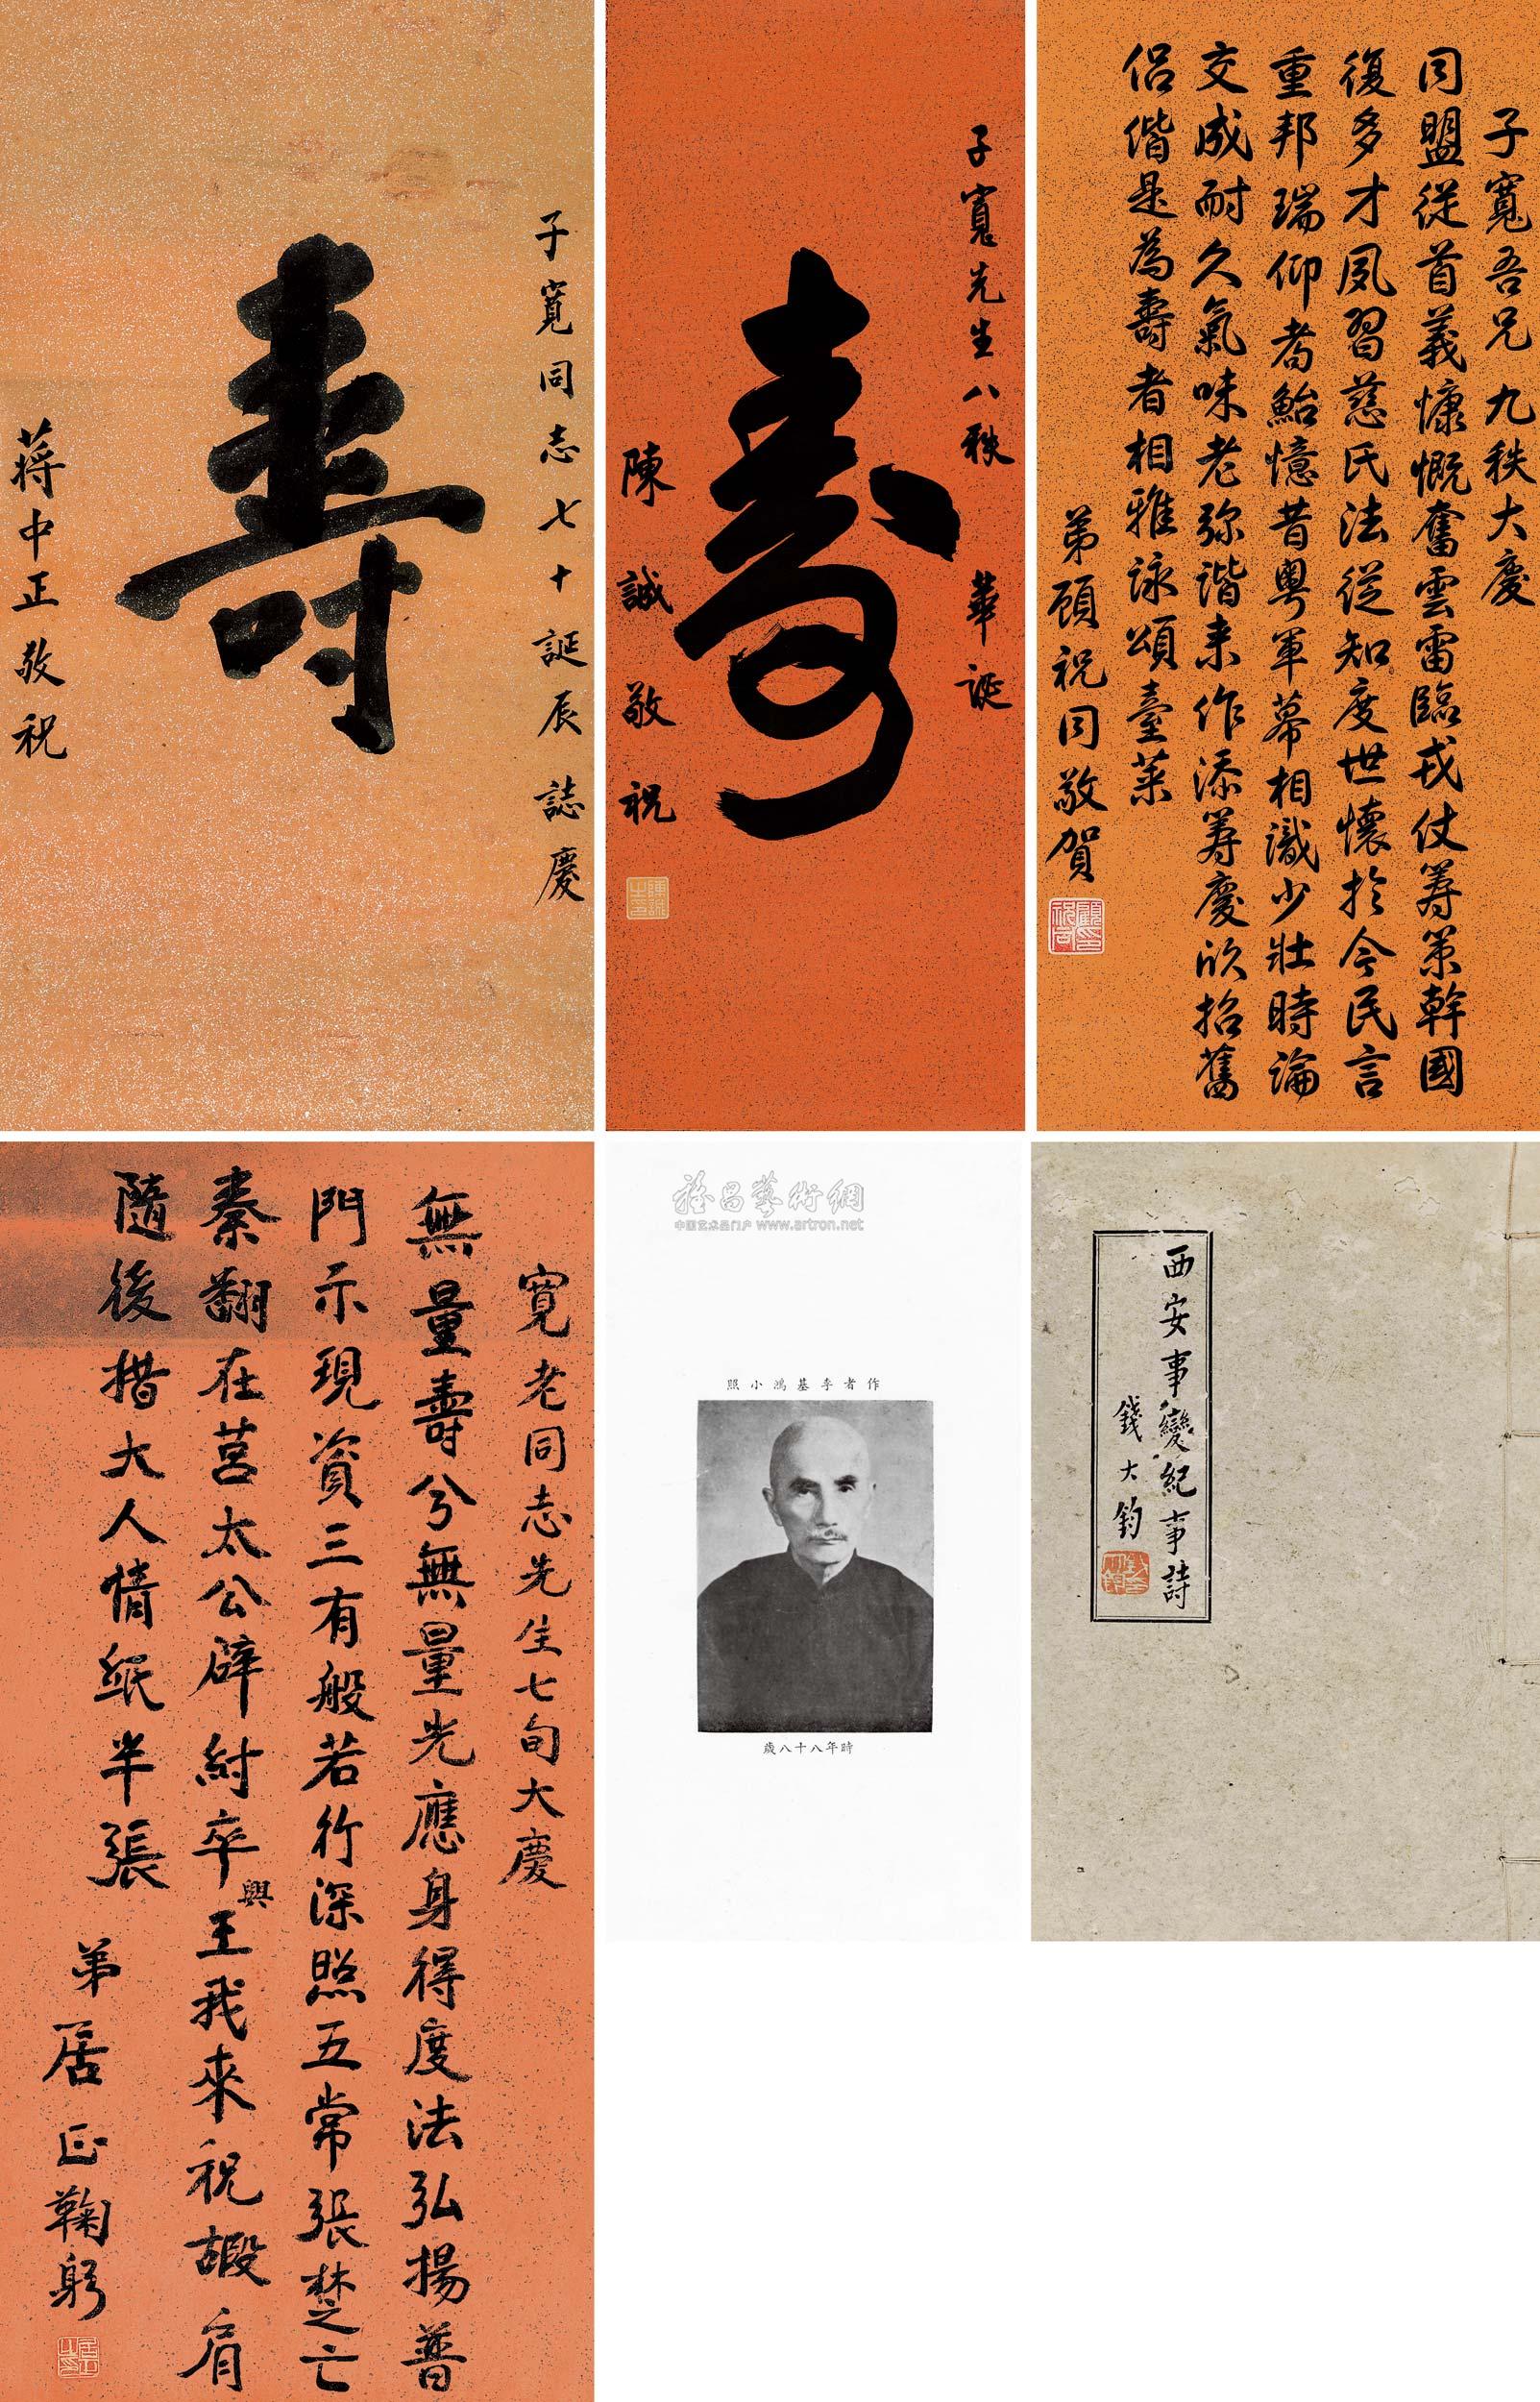 子寬同志七十誕辰誌慶
壽
蔣中正敬祝
子寬先生八秩華誕
壽
陳誠敬祝
陳誠之印
子寬吾兄九秩大慶
同盟從首義慷慨奮雲雷臨戎仗筹策幹國
復多才夙習慈氏法從知度世懷於今民言
重邦瑞仰耆鮐憶昔粤軍幕相識少壯時論
交成耐久氣味老弥諧来作添筹慶欣招舊
侣偕是為壽者相雅詠頌臺萊
弟顾祝同敬賀
顧祝同
寬老同志先生七旬大慶
無量壽兮無量光應身得度法弘揚普
門示現資三有般若行深照五常張楚亡
秦翻在莒太公辟紂卒興王我來祝嘏肩
隨後措大人情紙半張
弟居正鞠躬
居正之印
雅昌藝術網
中国艺术品门户 www.artron.net
照小鴻基李者作
歲八十八年時
西安事變紀事詩
錢大鈞